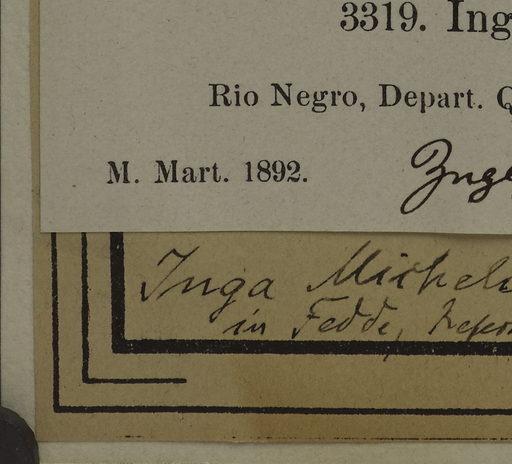 3319. Ing
Rio Negro, Depart.
M. Mart. 1892.
Inga
Inga Michel
in Fedde,